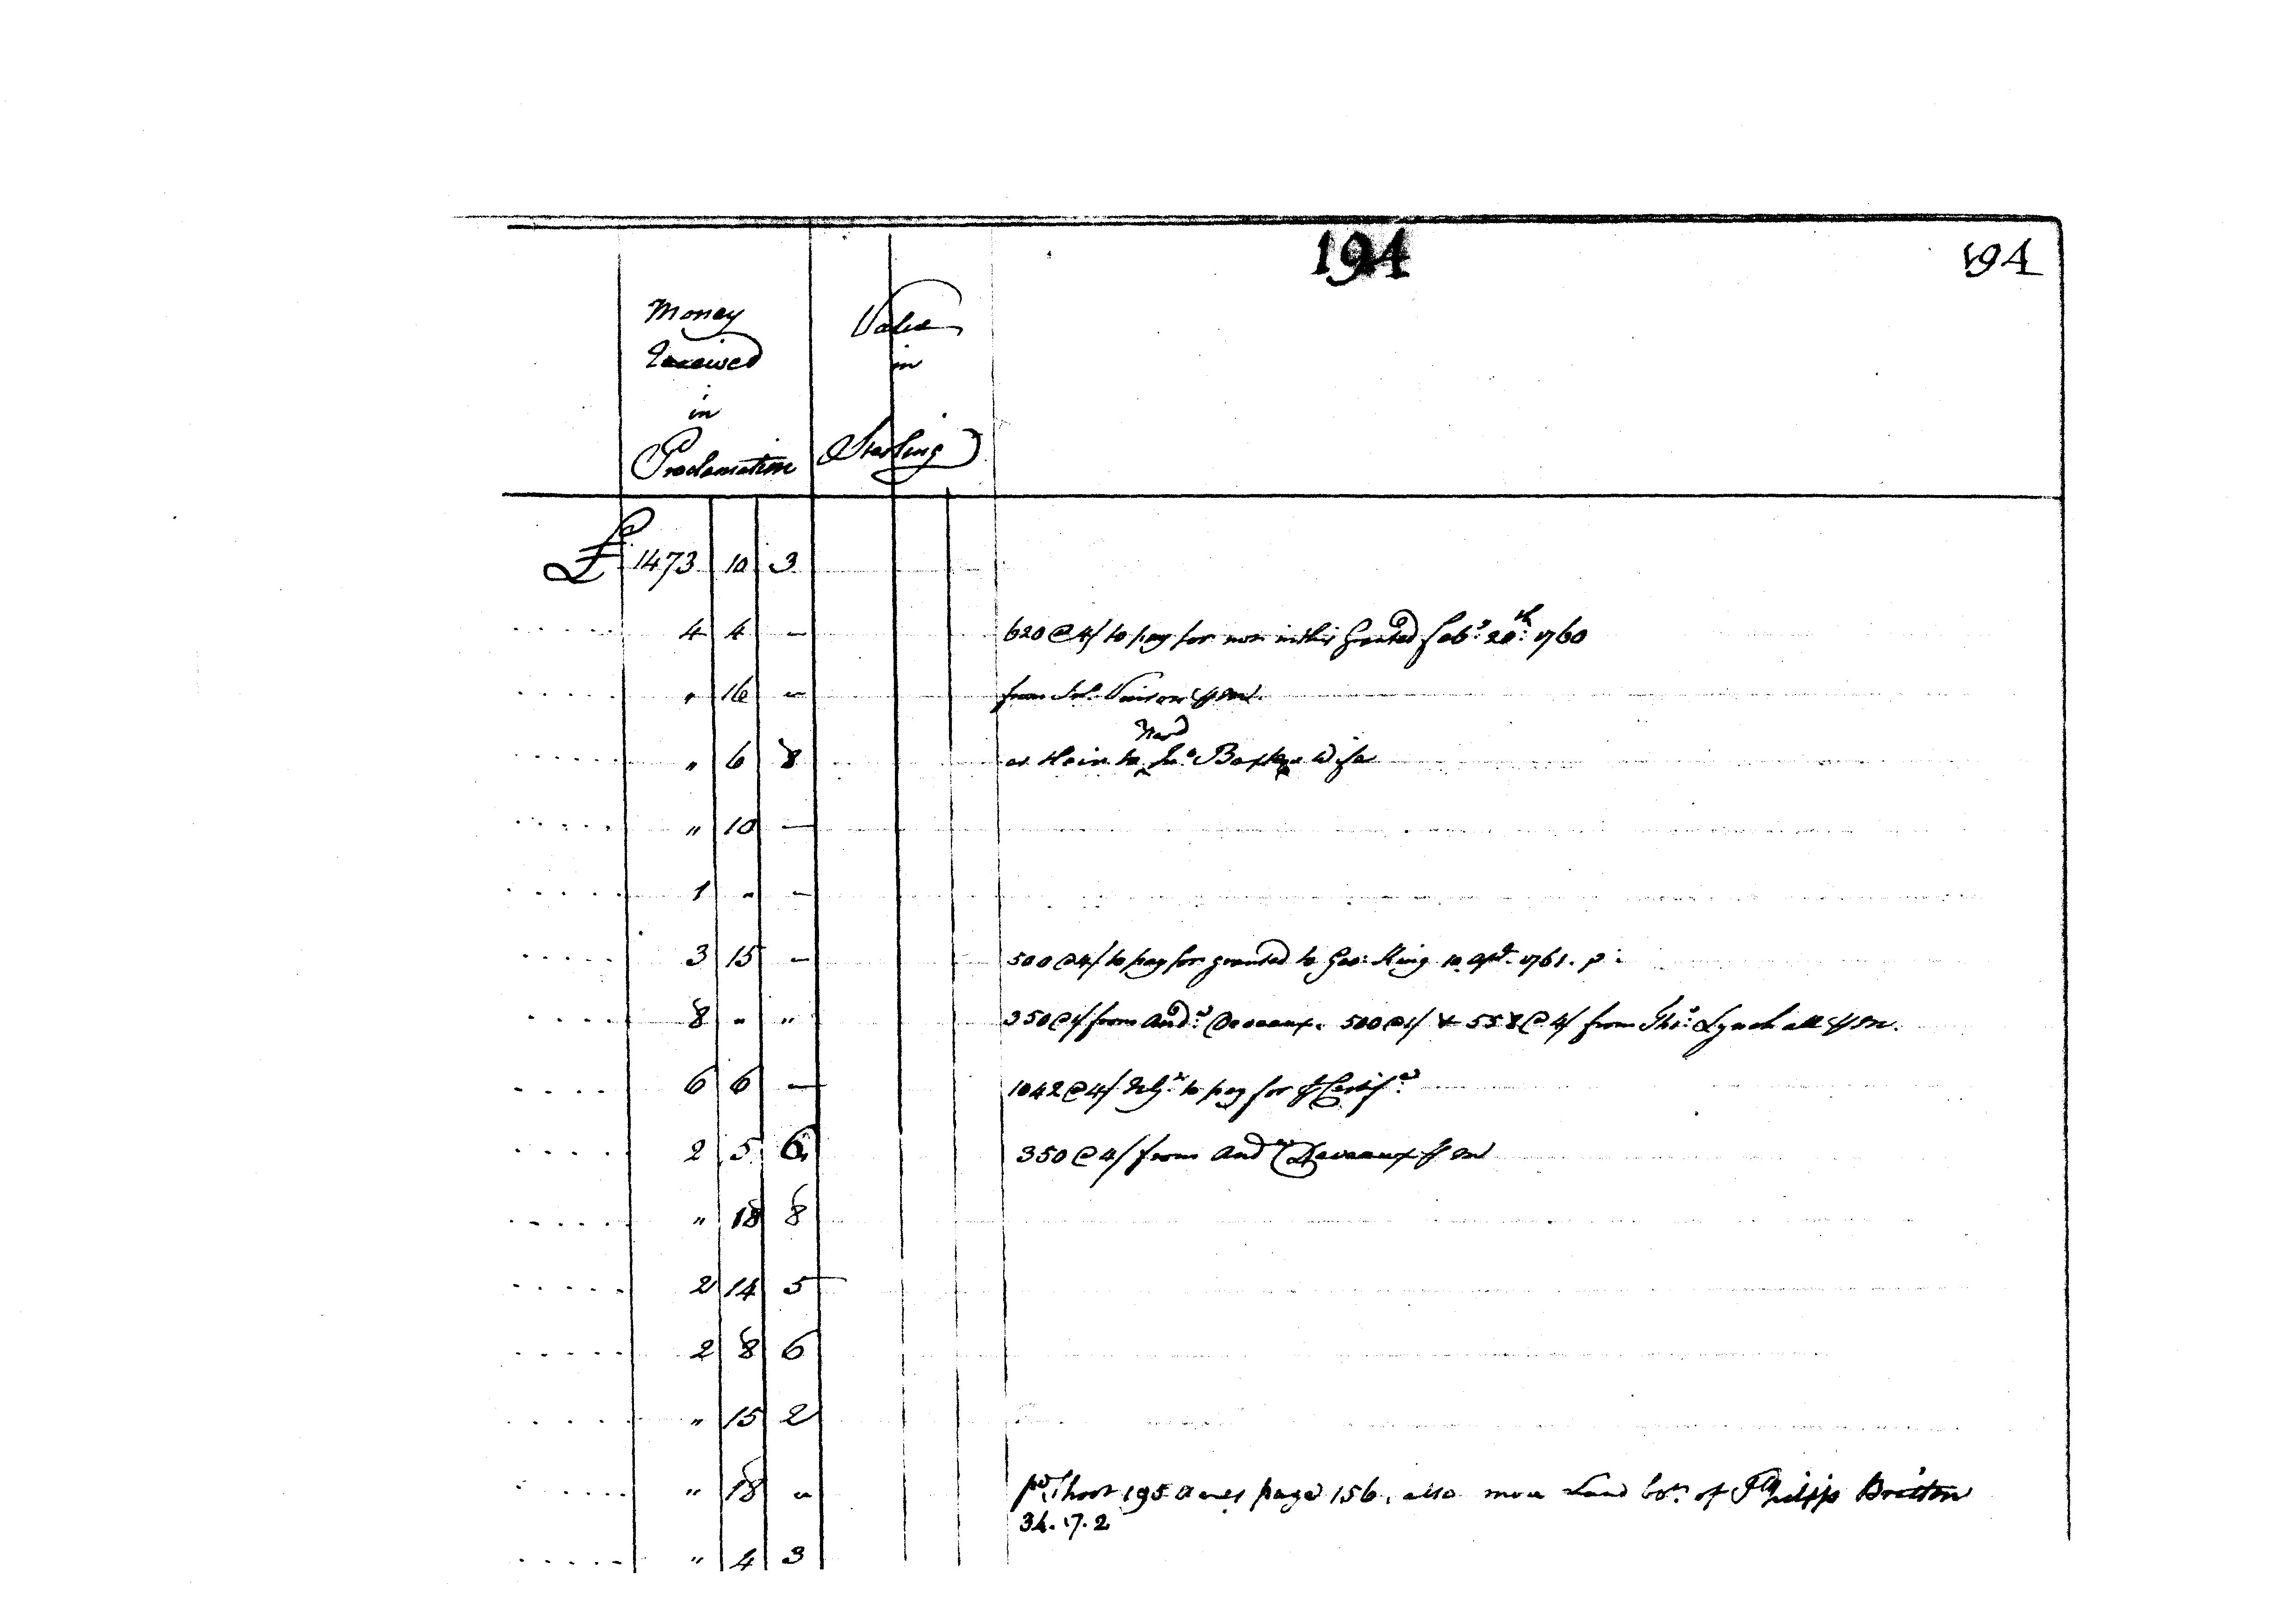 194 194
Money Received in Proclamation
Value in Sterling
£ 1473 10 3
4 4 — 620 @ 4/ to pay for now in his Granted Feb.y 20.th 1760
" 16 " from
" 6 8 as Heir to Jn.o Baxter Wife
" 10 —
1 " —
3 15 — 500 @ 4/ to pay for granted to Geo: King 10 Apl. 1761. p
8 " " 350 @ 4/ from And.w Deveaux. 500 @ 4/ & 558 @ 4/ from Tho.s Lynch all
6 6 — 1042 @ 4/ to pay for Certif.e
2 5 6 350 @ 4/ from And.w Deveaux
" 18 8
2 14 5
2 8 6
" 15 2
" 18 " 195 acres page 156. also more Land bo.t of Philip Britton
34. 17. 2
" 4 3